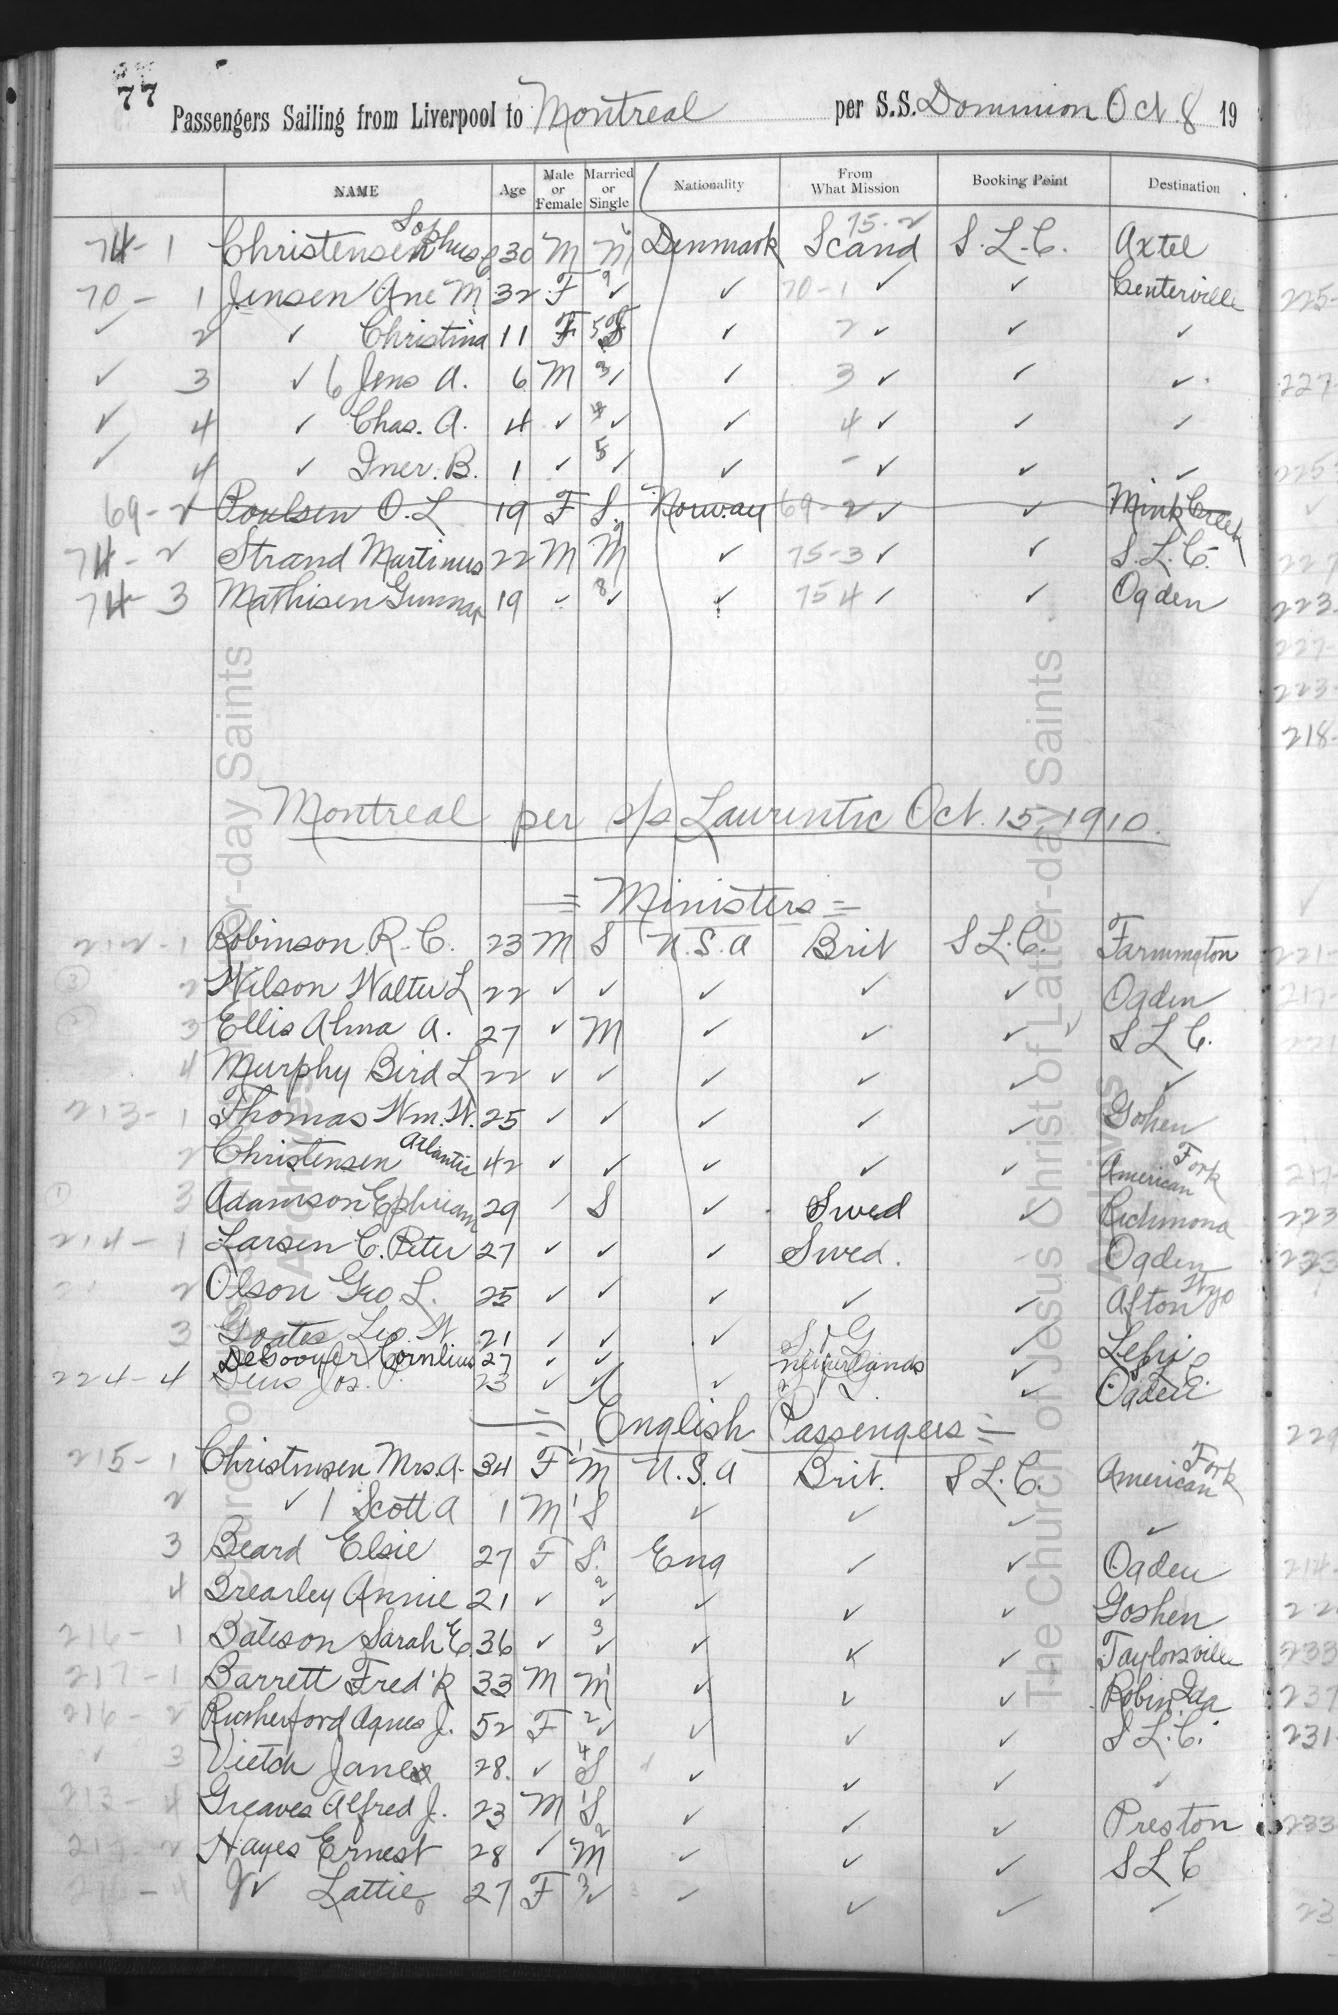 77
Passengers Sailing from Liverpool to Montreal per S.S. Dominion Oct 8 19
NAME Age Male or Female Married or Single Nationality From What Mission Booking Point Destination
74-1 Christensen Sophus 30 M M Denmark Scand 75-2 S.L.C. Axtel
70-1 Jensen Ane M 32 F 2 ✓ ✓ 70-1 ✓ ✓ Centerville
✓ 2 ✓ Christina 11 F S ✓ 2 ✓ ✓ ✓
✓ 3 ✓ 6 Jens A. 6 M 3 ✓ ✓ 3 ✓ ✓ ✓
✓ 4 ✓ Chas. A. 4 ✓ 4 ✓ ✓ 4 ✓ ✓ ✓
✓ 4 ✓ Iner. B. 1 ✓ 5 ✓ ✓ - ✓ ✓ ✓
69-2 Poulsen O.L 19 F S. Norway 69-2 ✓ ✓ Mink Creek
74-2 Strand Martinus 22 M M ✓ 75-3 ✓ ✓ S.L.C.
74-3 Mathisen Gunnar 19 ✓ 8 ✓ ✓ 75 4 ✓ ✓ Ogden
Montreal per s/s Laurentic Oct. 15, 1910.
= Ministers =
212-1 Robinson R.C. 23 M S U.S.A Brit S.L.C. Farmington
(3) 2 Wilson Walter L 22 ✓ ✓ ✓ ✓ ✓ Ogden
(2) 3 Ellis Alma A. 27 ✓ M ✓ ✓ ✓ S L C.
4 Murphy Bird L 22 ✓ ✓ ✓ ✓ ✓ ✓
213-1 Thomas Wm. W. 25 ✓ ✓ ✓ ✓ ✓ Goshen
2 Christensen Atlantic 42 ✓ ✓ ✓ ✓ ✓ American Fork
(1) 3 Adamson Ephriam 29 ✓ S ✓ Swed ✓ Richmond
214-1 Larsen C. Peter 27 ✓ ✓ ✓ Swed. Ogden
2 Olson Geo L. 25 ✓ ✓ ✓ ✓ ✓ Afton Wyo
3 Goates Leo. W. 21 ✓ ✓ ✓ S & G ✓ Lehi
DeGooyer Cornlius 27 ✓ ✓ Netherlands ✓ S L C.
224-4 Jos. 23 ✓ M ✓ ✓ Ogden
= English Passengers =
215-1 Christensen Mrs. A. 34 F 1 M U.S.A Brit. S L C. American Fork
2 ✓ 1 Scott A 1 M 1 S ✓ ✓ ✓ ✓
3 Beard Elsie 27 F S. 1 Eng ✓ ✓ Ogden
4 Brearley Annie 21 ✓ 2 ✓ ✓ ✓ ✓ Goshen
216-1 Bateson Sarah E. 36 ✓ 3 ✓ ✓ ✓ ✓ Taylorsville
217-1 Barrett Fred'k 33 M M 1 ✓ ✓ ✓ Robin Ida
216-2 Rutherford Agnes J. 52 F 2 ✓ ✓ ✓ ✓ S L.C.
✓ 3 Vietch Janes 28. ✓ 4 S ✓ ✓ ✓ ✓
213-4 Greaves Alfred J. 23 M 1 S ✓ ✓ ✓ Preston
217-2 Hayes Ernest 28 ✓ 2 M ✓ ✓ ✓ S L C
-4 ✓ Lattie 27 F 3 ✓ ✓ ✓ ✓ ✓
The Church of Jesus Christ of Latter-day Saints
Archives